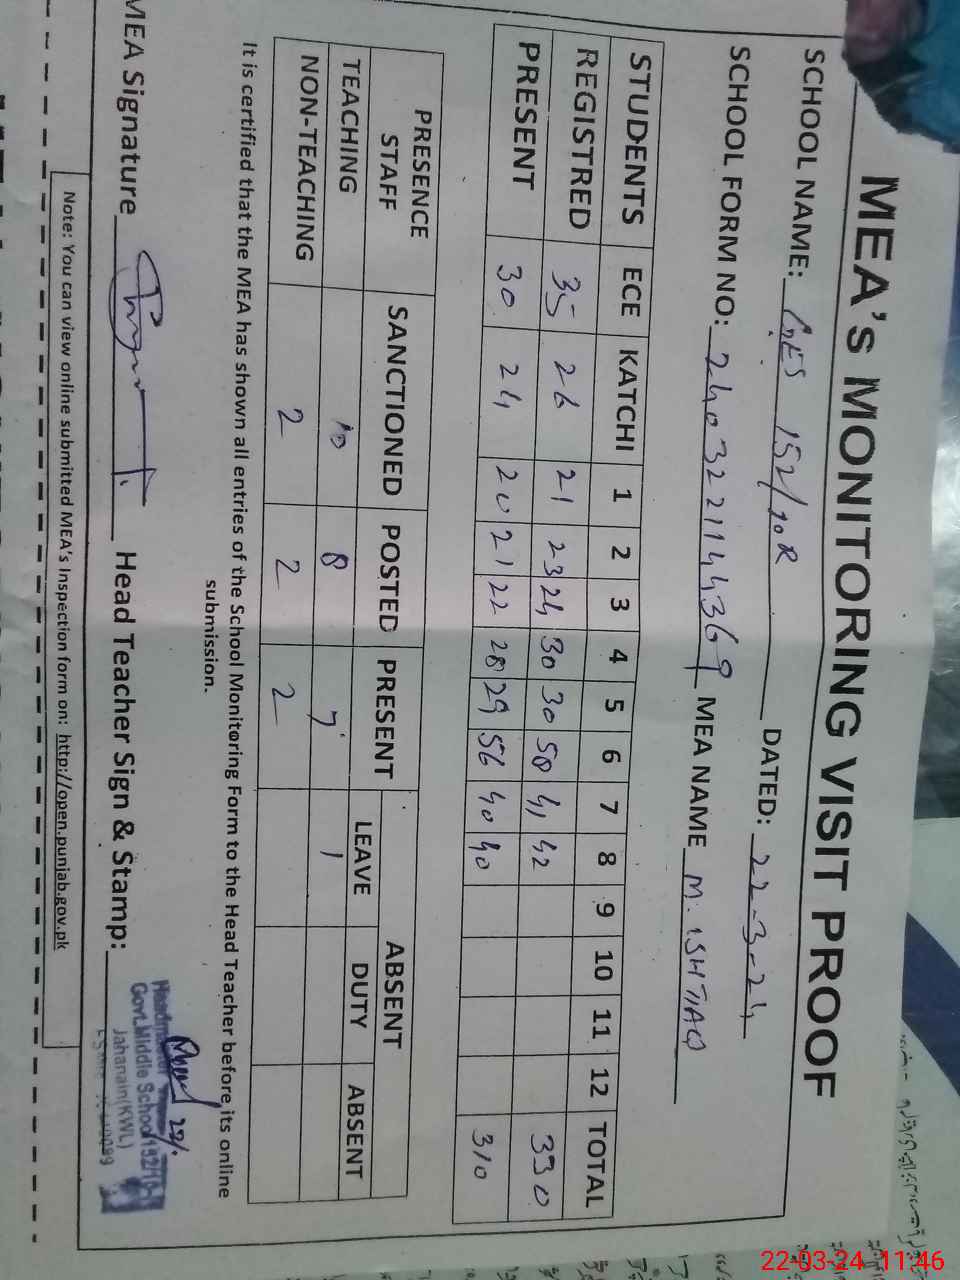 MEA's MONITORING VISIT PROOF
SCHOOL NAME: GES 152/10R DATED: 22-3-24
SCHOOL FORM NO: 2403221144369 MEA NAME M. ISHTIAQ
STUDENTS ECE KATCHI 1 2 3 4 5 6 7 8 9 10 11 12 TOTAL
REGISTRED 35 26 21 23 24 30 30 58 41 42 330
PRESENT 30 24 20 21 22 28 29 56 40 40 310
PRESENCE STAFF SANCTIONED POSTED PRESENT ABSENT
LEAVE DUTY ABSENT
TEACHING 10 8 7 1
NON-TEACHING 2 2 2
It is certified that the MEA has shown all entries of the School Monitoring Form to the Head Teacher before its online
submission.
MEA Signature Head Teacher Sign & Stamp:
Headmaster
Govt.Middle School 152/10-R
Jahanain(KWL)
Note: You can view online submitted MEA's Inspection form on: http://open.punjab.gov.pk
22-03-24 11:46